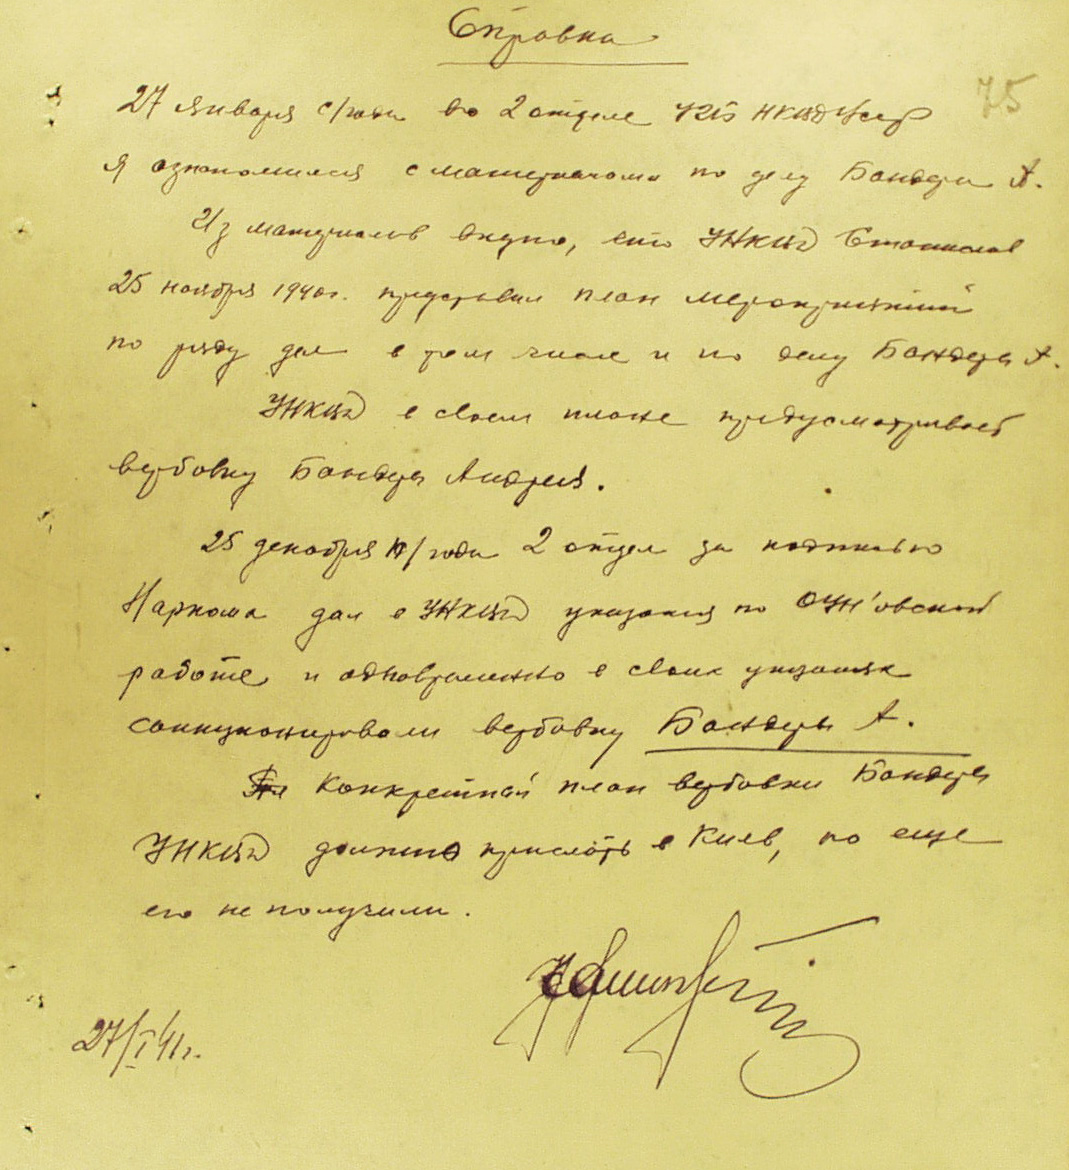 Справка
75
27 января с/года во 2 отделе УГБ НКВД УССР
я ознакомился с материалами по делу Бандеры А.
Из материалов видно, что УНКВД Станислав
25 ноября 1940г. представил план мероприятий
по ряду дел в том числе и по делу Бандеры А.
УНКВД в своем плане предусматривает
вербовку Бандеры Андрея.
25 декабря /года 2 отдел за подписью
Наркома дал в УНКВД указания по ОУН'овской
работе и одновременно в своих указаниях
санкционировали вербовку Бандеры А.
Конкретный план вербовки Бандеры
УНКВД должно прислать в Киев, но еще
его не получили.
27/I 41г.